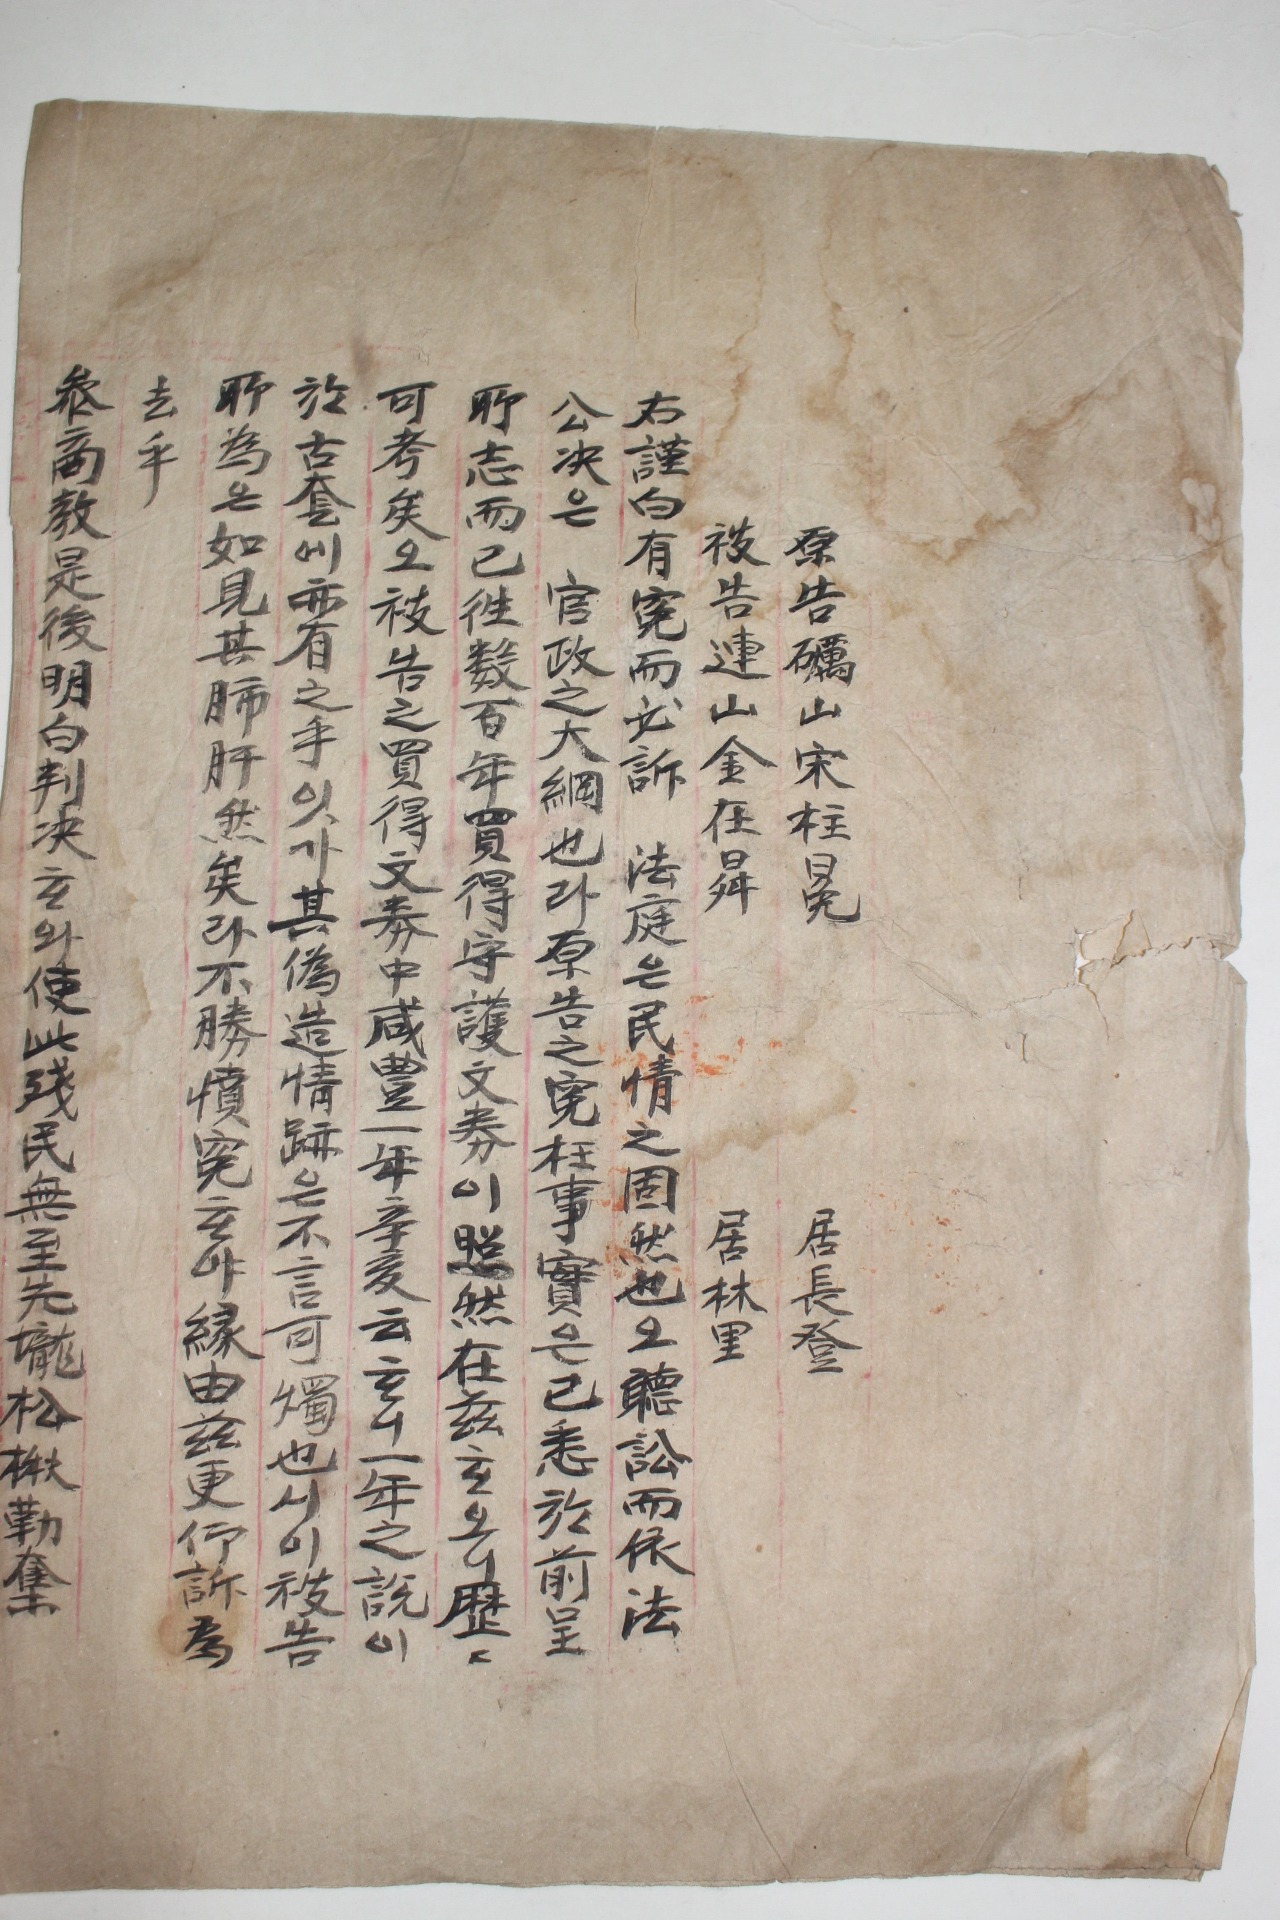 原告礪山宋柱冕 居長登
被告連山金在昇 居林里
右謹白有寃而必訴 法庭은民情之固然也오聽訟而依法
公决은 官政之大綱也라原告之寃枉事實은已悉於前呈
所志而已徃数百年買得守護文券이照然在玆호오니歷々
可考矣오被告之買得文券中咸豊一年辛亥云호니一年之說이
於古套에亦有之乎잇가其偽造情跡은不言可燭也시이被告
所為은如見其肺肝然矣라不勝憤寃호야縁由玆更仰訴為
去乎
叅商教是後明白判决호와使此殘民無至先壠松楸勒奪